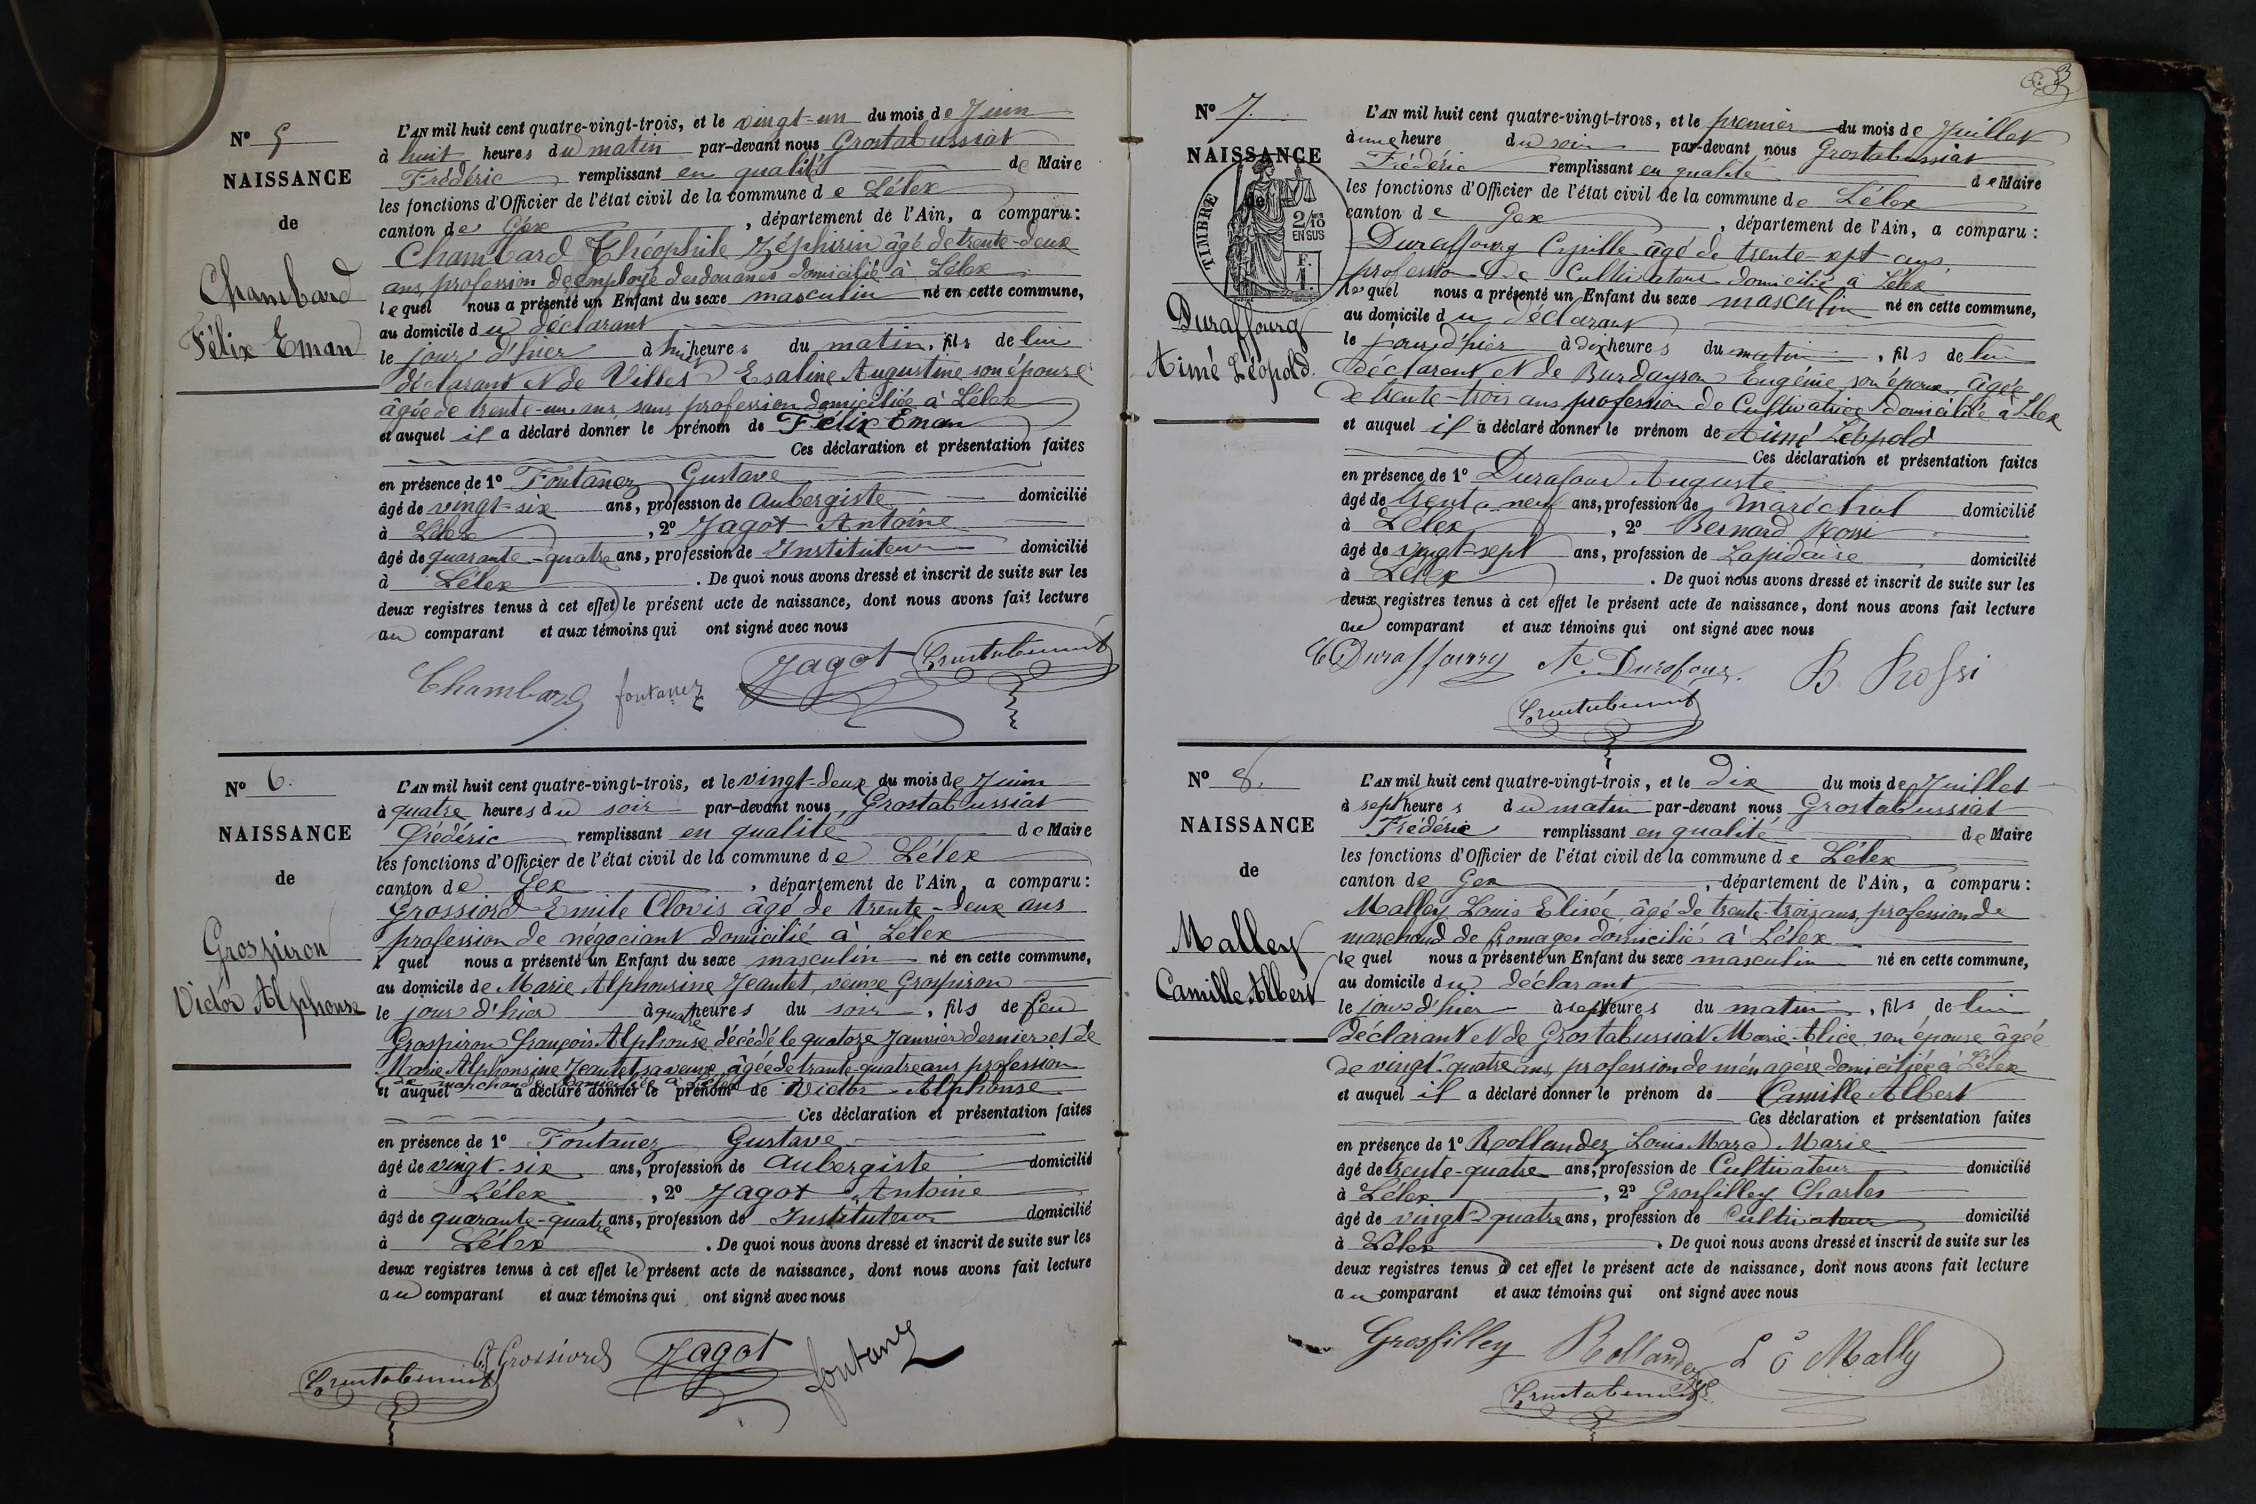 N° 5
NAISSANCE
de
Chambard
Félix Eman
L'AN mil huit cent quatre-vingt-trois, et le vingt-un du mois de Juin
à huit heures du matin par-devant nous Grostabussiat
Frédéric remplissant en qualité de Maire
les fonctions d'Officier de l'état civil de la commune de Lélex
canton de Gex, département de l'Ain, a comparu:
Chambard Théophile Zéphirin âgé de trente-deux
ans, profession de employé des douanes domicilié à Lélex
lequel nous a présenté un Enfant du sexe masculin né en cette commune,
au domicile du déclarant
le jour d'hier à huit heures du matin, fils de lui
déclarant et de Villet Esaline Augustine son épouse
âgée de trente-un ans, sans profession domiciliée à Lélex
et auquel il a déclaré donner le prénom de Félix Eman
Ces déclaration et présentation faites
en présence de 1° Fontanez Gustave
âgé de vingt-six ans, profession de aubergiste domicilié
à Lélex, 2° Jagot Antoine
âgé de quarante-quatre ans, profession de Instituteur domicilié
à Lélex. De quoi nous avons dressé et inscrit de suite sur les
deux registres tenus à cet effet le présent acte de naissance, dont nous avons fait lecture
au comparant et aux témoins qui ont signé avec nous
Chambard fontanez Jagot Grostabussiat
N° 6.
NAISSANCE
de
Grospiron
Victor Alphonse
L'AN mil huit cent quatre-vingt-trois, et le vingt-deux du mois de Juin
à quatre heures du soir par-devant nous Grostabussiat
Frédéric remplissant en qualité de Maire
les fonctions d'Officier de l'état civil de la commune de Lélex
canton de Gex, département de l'Ain, a comparu:
Grossiord Emile Clovis âgé de trente-deux ans
profession de négociant domicilié à Lélex
l quel nous a présenté un Enfant du sexe masculin né en cette commune,
au domicile de Marie Alphonsine Jeantet, veuve Grospiron
le jour d'hier à quatre heures du soir, fils de feu
Grospiron François Alphonse décédé le quatorze Janvier dernier et de
Marie Alphonsine Jeantet sa veuve, âgée de trente-quatre ans profession
de marchande domiciliée à Lélex
et auquel a déclaré donner le prénom de Victor Alphonse
Ces déclaration et présentation faites
en présence de 1° Fontanez Gustave
âgé de vingt-six ans, profession de aubergiste domicilié
à Lélex, 2° Jagot Antoine
âgé de quarante-quatre ans, profession de Instituteur domicilié
à Lélex. De quoi nous avons dressé et inscrit de suite sur les
deux registres tenus à cet effet le présent acte de naissance, dont nous avons fait lecture
au comparant et aux témoins qui ont signé avec nous
Grostabussiat Grossiord Jagot fontanez
N° 7.
NAISSANCE
de
TIMBRE
2/10 EN SUS
F. 1.
Duraffourg
Aimé Léopold.
L'AN mil huit cent quatre-vingt-trois, et le premier du mois de Juillet
à une heure du soir par-devant nous Grostabussiat
Frédéric remplissant en qualité de Maire
les fonctions d'Officier de l'état civil de la commune de Lélex
canton de Gex, département de l'Ain, a comparu:
Duraffourg Cyrille âgé de trente-sept ans,
profession de Cultivateur domicilié à Lélex
lequel nous a présenté un Enfant du sexe masculin né en cette commune,
au domicile du déclarant
le jour d'hier à dix heures du matin, fils de lui
déclarant et de Burdayron Eugénie son épouse âgée
de trente-trois ans profession de Cultivatrice domiciliée à Lélex
et auquel il a déclaré donner le prénom de Aimé Léopold
Ces déclaration et présentation faites
en présence de 1° Durafour Auguste
âgé de trente-neuf ans, profession de Maréchal domicilié
à Lélex, 2° Bernard Rossi
âgé de vingt-sept ans, profession de Lapidaire domicilié
à Lélex. De quoi nous avons dressé et inscrit de suite sur les
deux registres tenus à cet effet le présent acte de naissance, dont nous avons fait lecture
au comparant et aux témoins qui ont signé avec nous
C Duraffourg Ate. Durafour. B Rossi
Grostabussiat
N° 8.
NAISSANCE
de
Malley
Camille Albert
L'AN mil huit cent quatre-vingt-trois, et le dix du mois de Juillet
à sept heures du matin par-devant nous Grostabussiat
Frédéric remplissant en qualité de Maire
les fonctions d'Officier de l'état civil de la commune de Lélex
canton de Gex, département de l'Ain, a comparu:
Malley Louis Elisée, âgé de trente-trois ans, profession de
marchand de fromages domicilié à Lélex
lequel nous a présenté un Enfant du sexe masculin né en cette commune,
au domicile du déclarant
le jour d'hier à sept heures du matin, fils de lui
déclarant et de Grostabussiat Marie-Alice, son épouse âgée
de vingt-quatre ans, profession de ménagère domiciliée à Lélex
et auquel il a déclaré donner le prénom de Camille Albert
Ces déclaration et présentation faites
en présence de 1° Rollandez Louis Marc Marie
âgé de trente-quatre ans, profession de Cultivateur domicilié
à Lélex, 2° Grosfilley Charles
âgé de vingt-quatre ans, profession de Cultivateur domicilié
à Lélex. De quoi nous avons dressé et inscrit de suite sur les
deux registres tenus à cet effet le présent acte de naissance, dont nous avons fait lecture
au comparant et aux témoins qui ont signé avec nous
Grosfilley Rollandez L é Mally
Grostabussiat